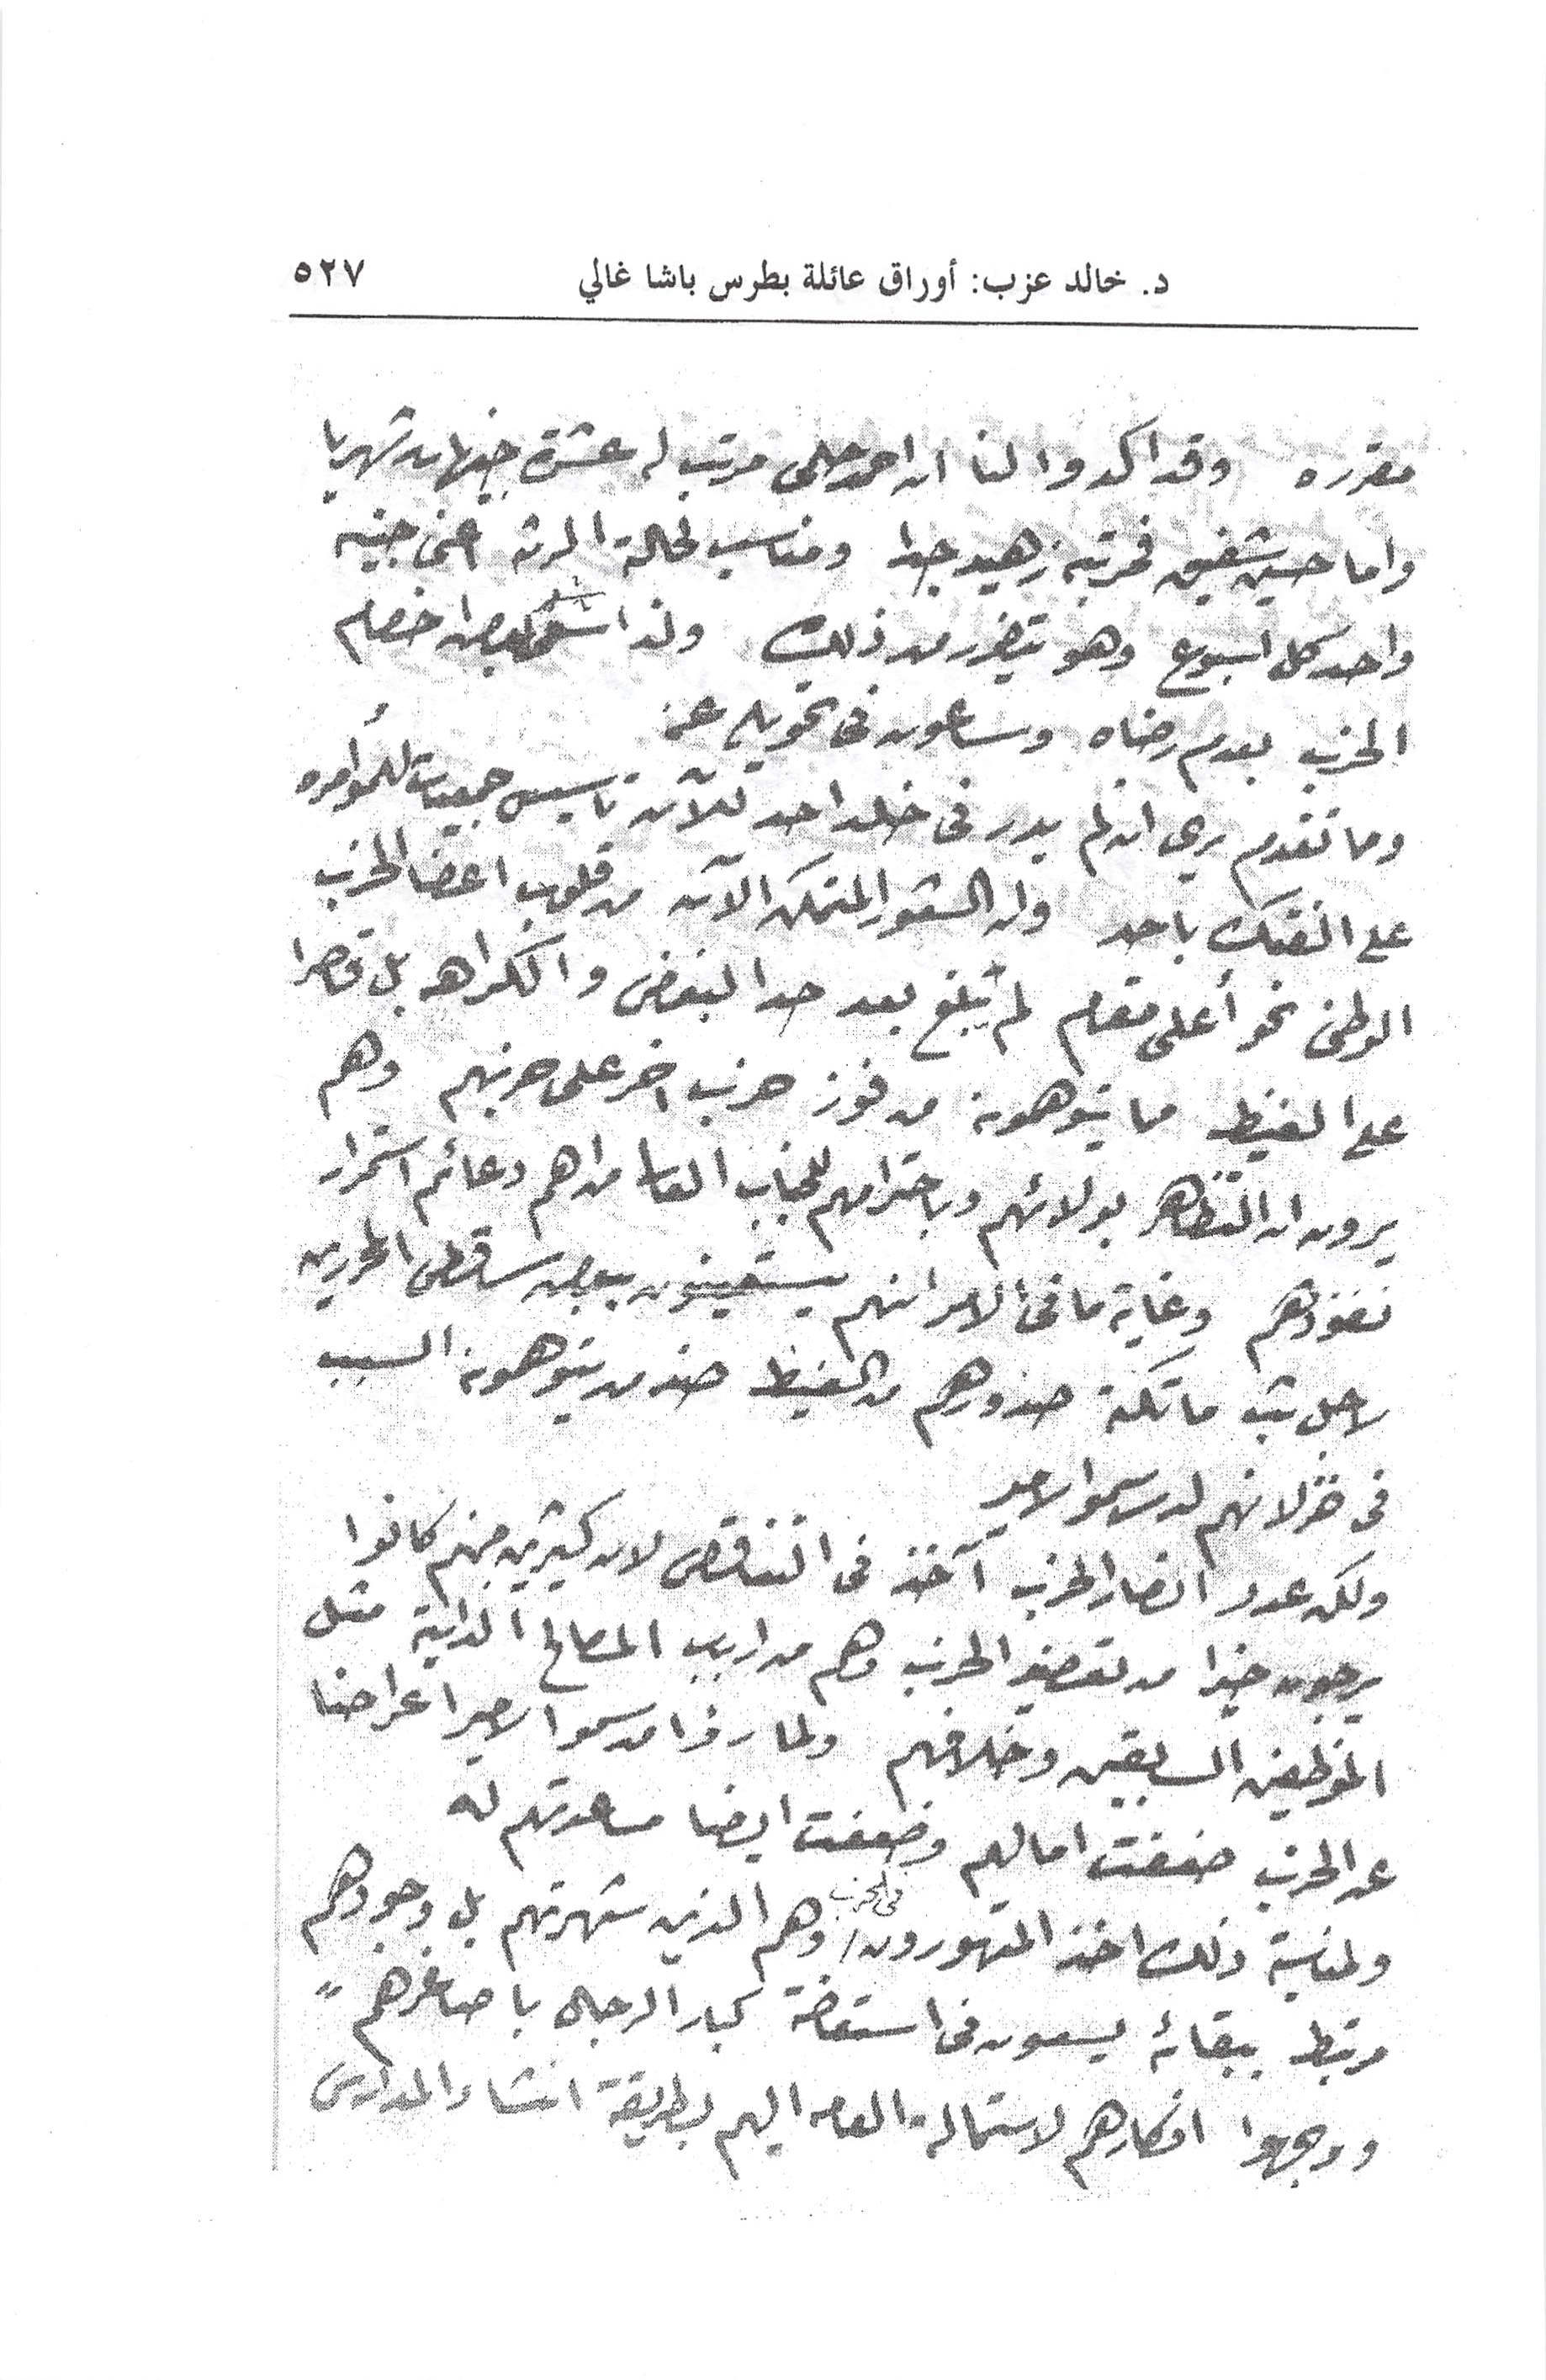 د. خالد عزب: أوراق عائلة بطرس باشا غالي ٥٢٧
مقرره وقد اكدوا لنا ان احمد حلمى مرتب له عشرة جنيهات شهريا
واما حسين شفيق فمرتبه زهيد جدا ومناسب لحالة الرثه اعنى جنيه
واحد كل اسبوع وهو يتضرر من ذلك ولذا لبعض اخصام
الحزب بعدم رضاه وساعون فى تحويله عنه
ومما تقدم يرى انه لم يدر فى خلد احد للآن تأسيس جمعيات للمؤامره
على الفتك باحد وان الشعور المتمكن الآن من قلوب اعضا الحزب
الوطنى نحو أعلى مقام لم يبلغ بعد حد البغض والكراهه بل قاصرا
على الغيظ مما يتوهمونه من فوز حزب اخر على حزبهم وهم
يرون ان التظاهر بولائهم وباحترامهم للجناب العالى من اهم دعائم استمرار
نفوذهم وغاية ما فى الامر انهم يستعينون ببعض ساقطى المحررين
لاجل بث ما تكنه صدورهم من الغيظ ضد من يتوهمونه السبب
فى خزلانهم لدى سمو الامير
ولكن عدد انصار الحزب آخذ فى التناقص لان كثيرين منهم كانوا
يرجون خيرا من تعضيد الحزب وهم من ارباب المصالح الذاتية مثل
الموظفين السابقين وخلافهم ولما رأوا من سمو الامير اعراضا
عن الحزب ضعفت امالهم وضعفت ايضا مساعدتهم له
ولمناسبة ذلك اخذ المتهورون فى الحزب وهم الذين شهرتهم بل وجودهم
مرتبط ببقائه يسعون فى استعاضة كبار الرجال باصاغرهم
ووجهوا افكارهم لاستمالة العامه اليهم بطريقة انتشار المدارس